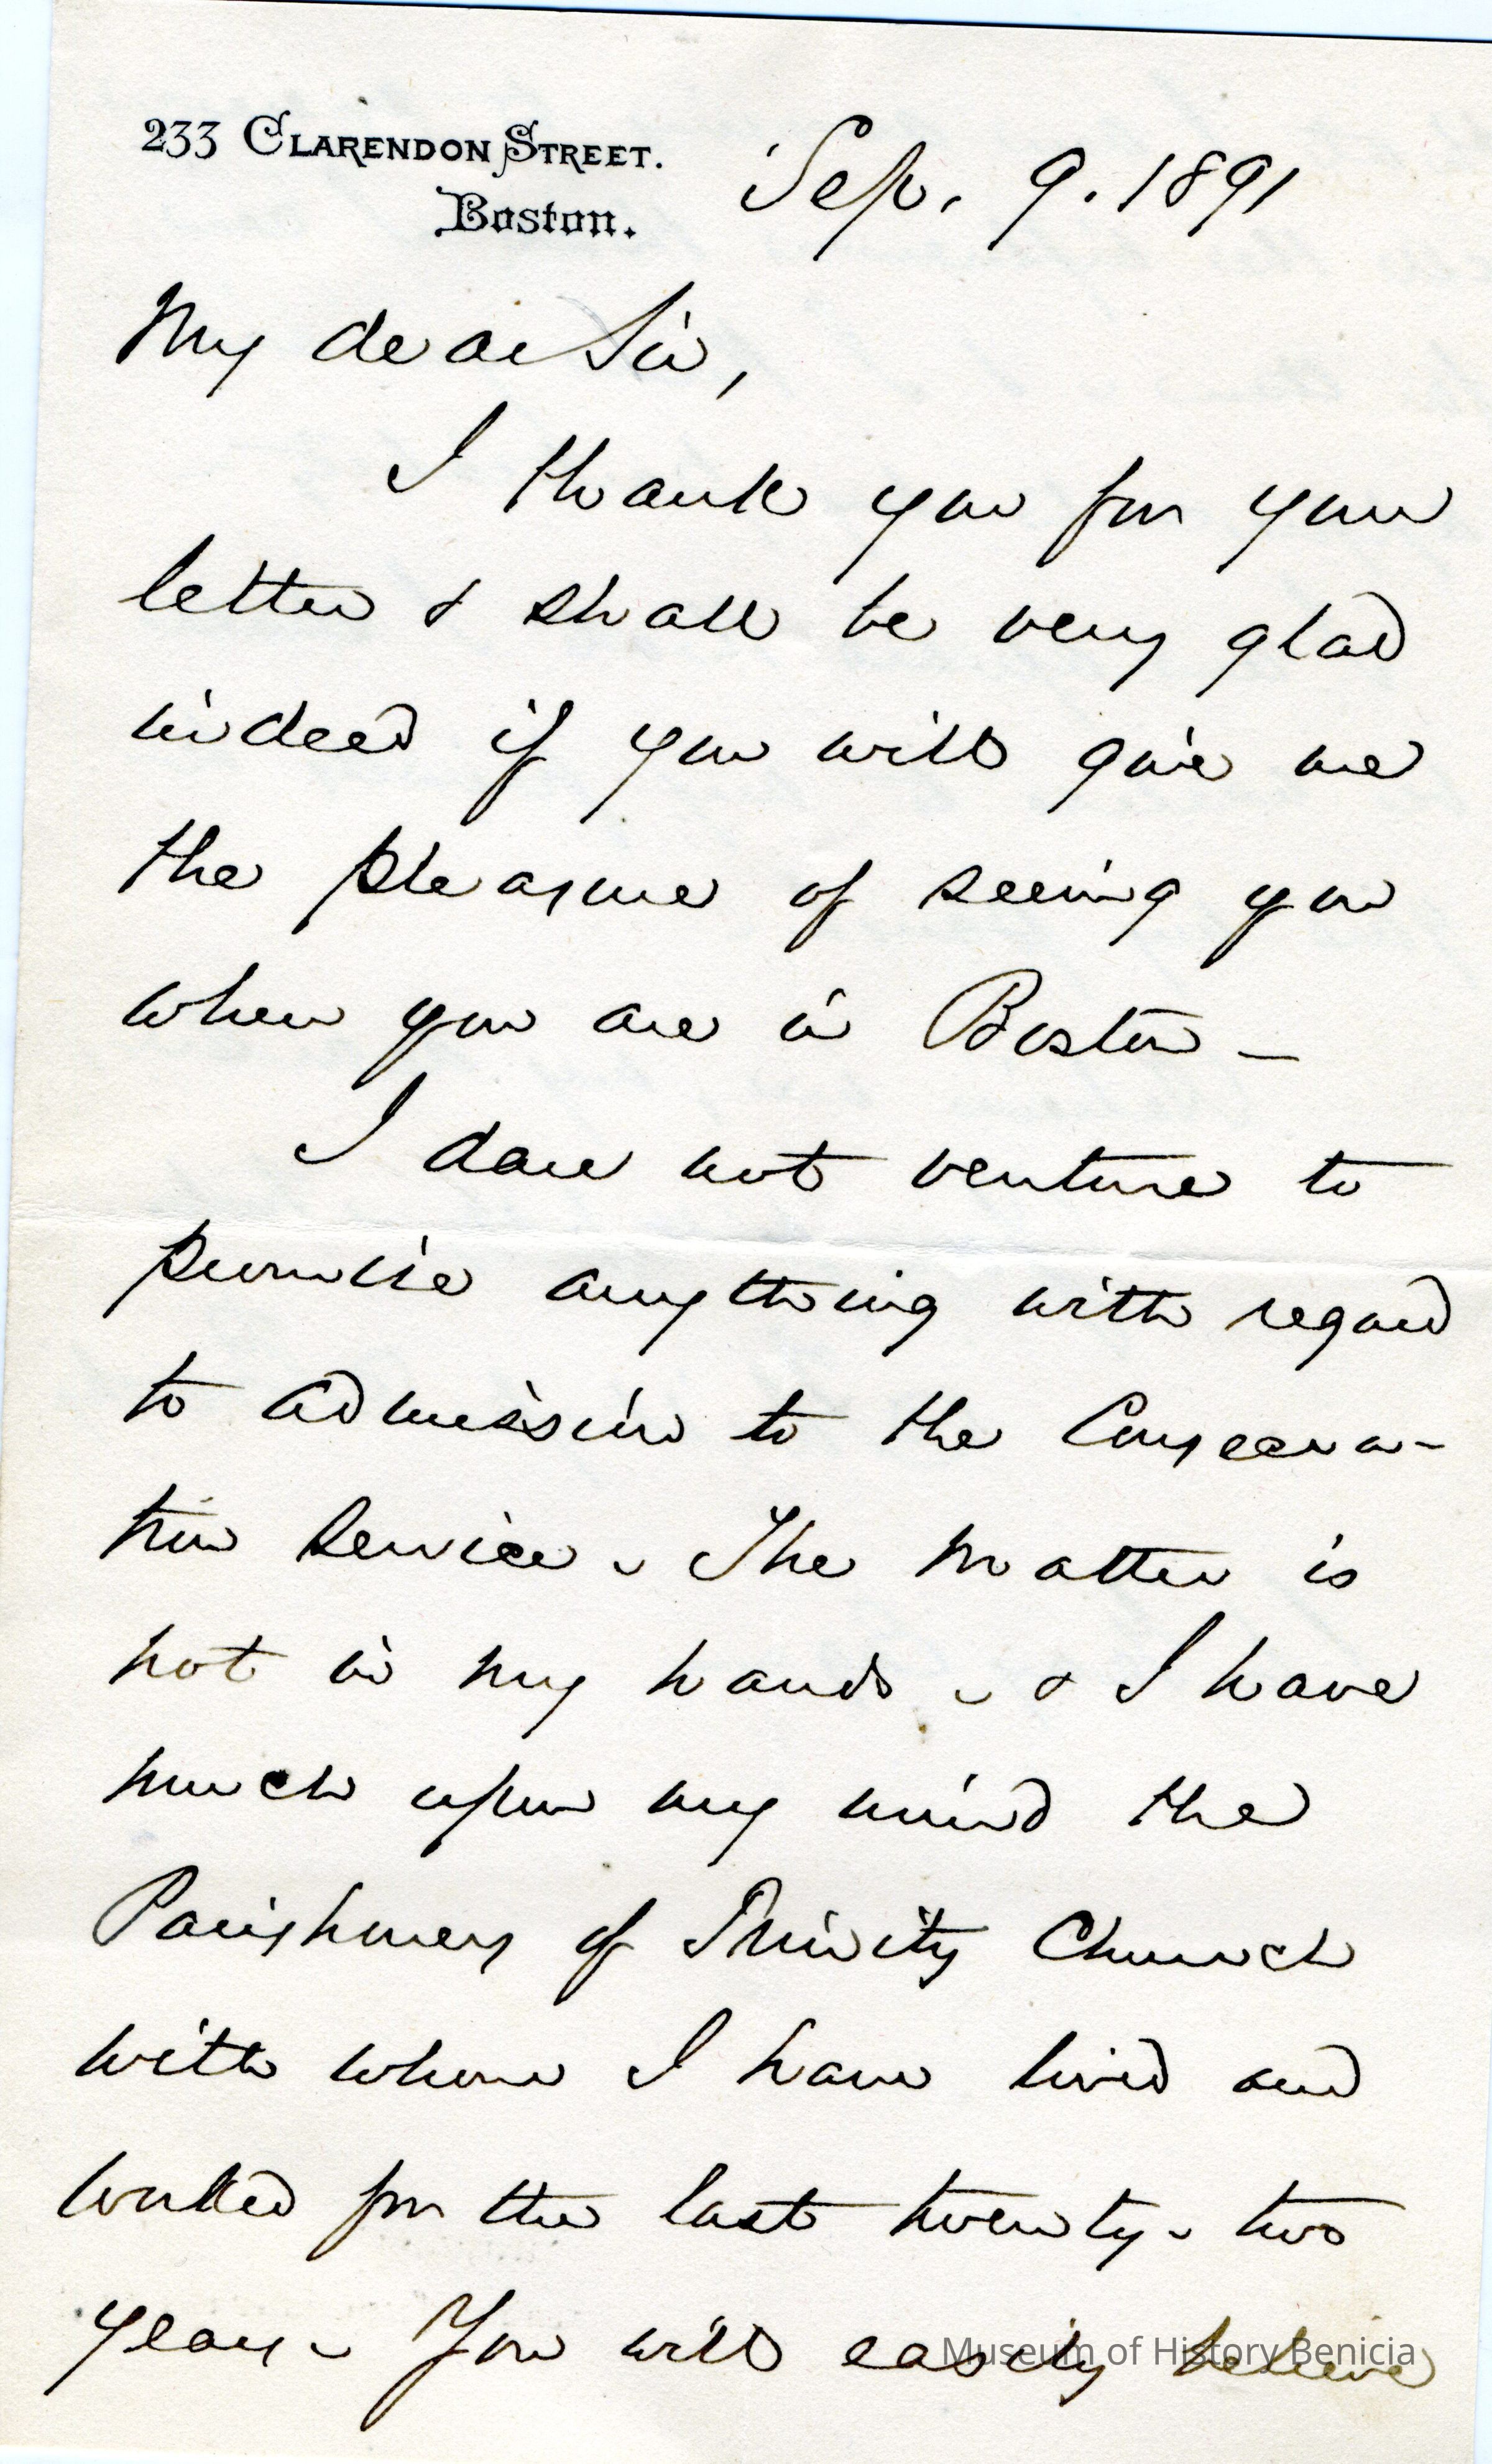 233 CLARENDON STREET.
Boston.
Sep. 9. 1891
My dear Sir,
I thank you for your
letter & shall be very glad
indeed if you will give me
the pleasure of seeing you
when you are in Boston -
I dare not venture to
promise anything with regard
to admission to the Consecra-
tion Service - The matter is
not in my hands - & I have
much upon my mind the
Parishioners of Trinity Church
with whom I have lived and
worked for the last twenty-two
years - You will easily believe
Museum of History Benicia